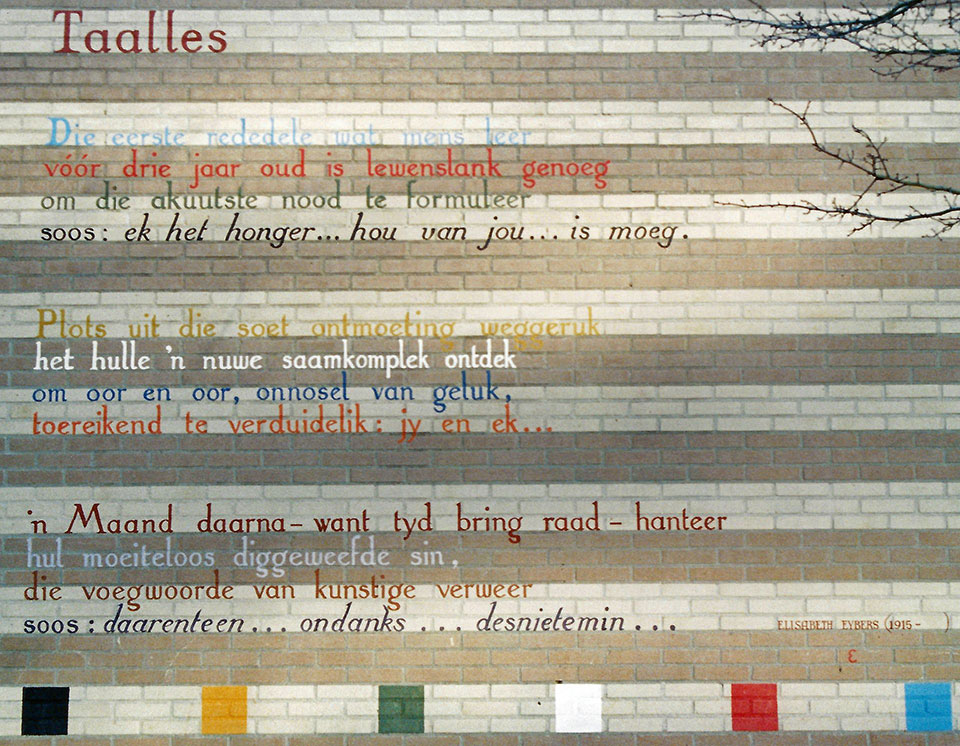 Taalles
Die eerste rededele wat mens leer
vóór drie jaar oud is lewenslank genoeg
om die akuutste nood te formuleer
soos: ek het honger... hou van jou... is moeg.
Plots uit die soet ontmoeting weggeruk
het hulle 'n nuwe saamkomplek ontdek
om oor en oor, onnosel van geluk,
toereikend te verduidelik: jy en ek...
'n Maand daarna – want tyd bring raad – hanteer
hul moeiteloos diggeweefde sin,
die voegwoorde van kunstige verweer
soos: daarenteen... ondanks ... desnietemin...
ELISABETH EYBERS (1915 - )
ε